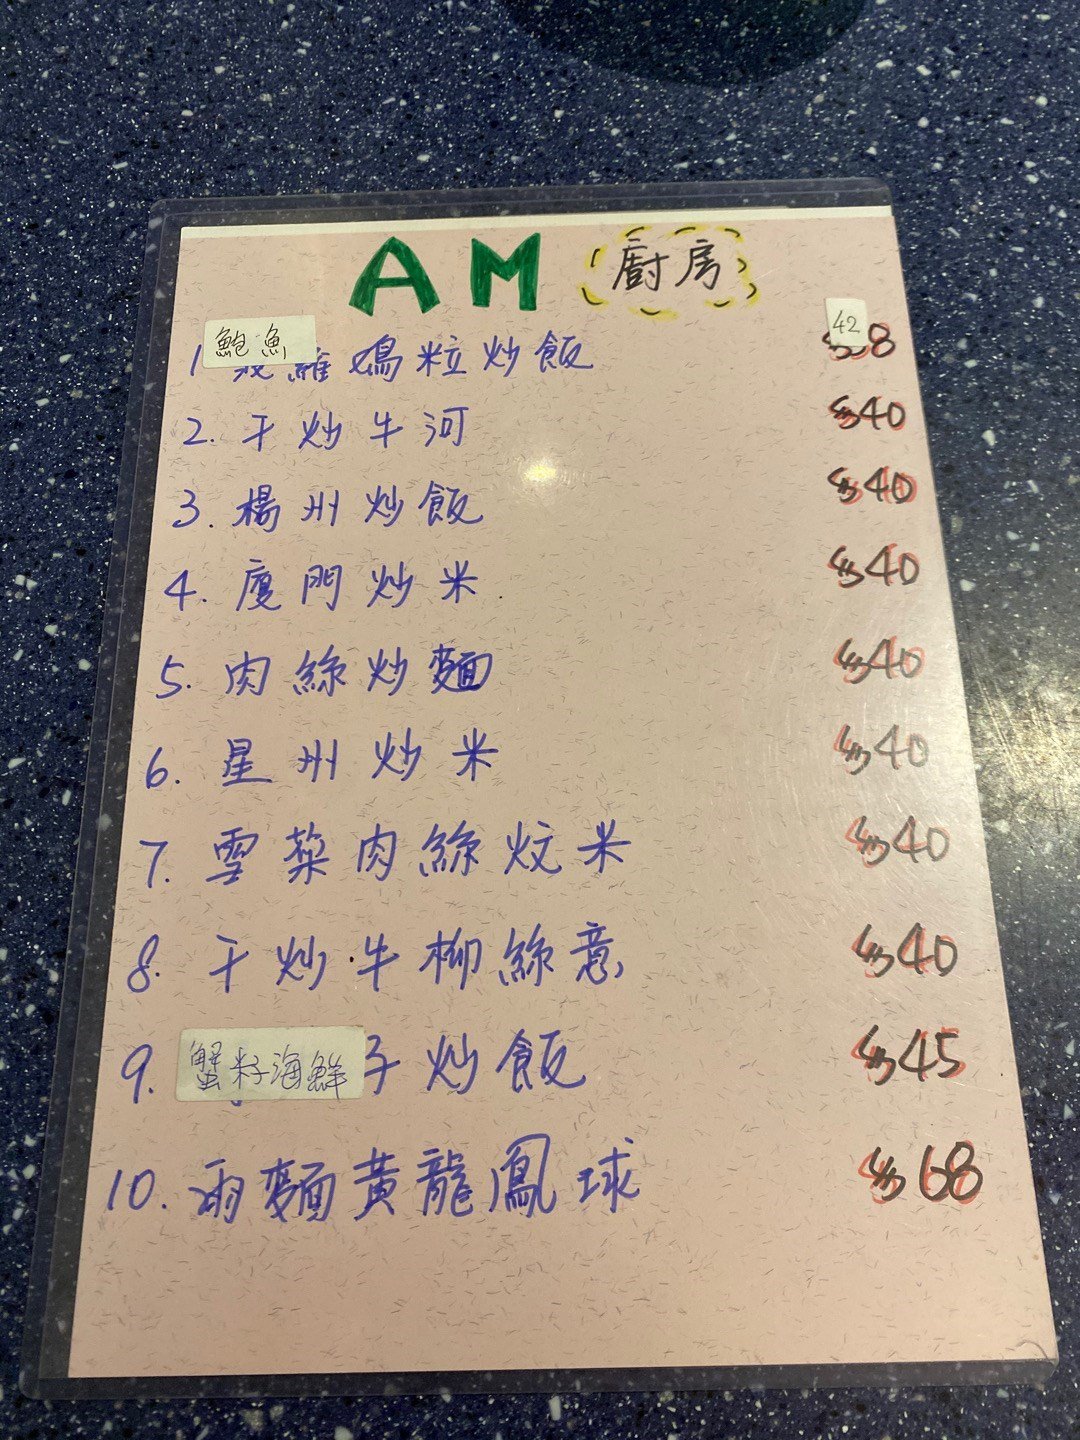 AM 廚房
1 鮑魚 雞粒炒飯 $42
2. 干炒牛河 $40
3. 楊州炒飯 $40
4. 廈門炒米 $40
5. 肉絲炒麵 $40
6. 星州炒米 $40
7. 雪菜肉絲炆米 $40
8. 干炒牛柳絲意 $40
9. 蟹籽海鮮子炒飯 $45
10. 兩麵黃龍鳳球 $68